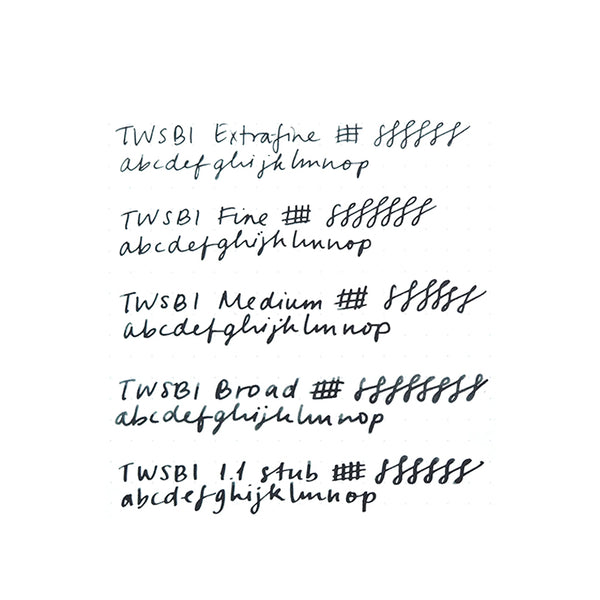 TWSBI Extrafine
abcdefghijklmnop
TWSBI Fine
abcdefghijklmnop
TWSBI Medium
abcdefghijklmnop
TWSBI Broad
abcdefghijklmnop
TWSBI 1.1 stub
abcdefghijklmnop